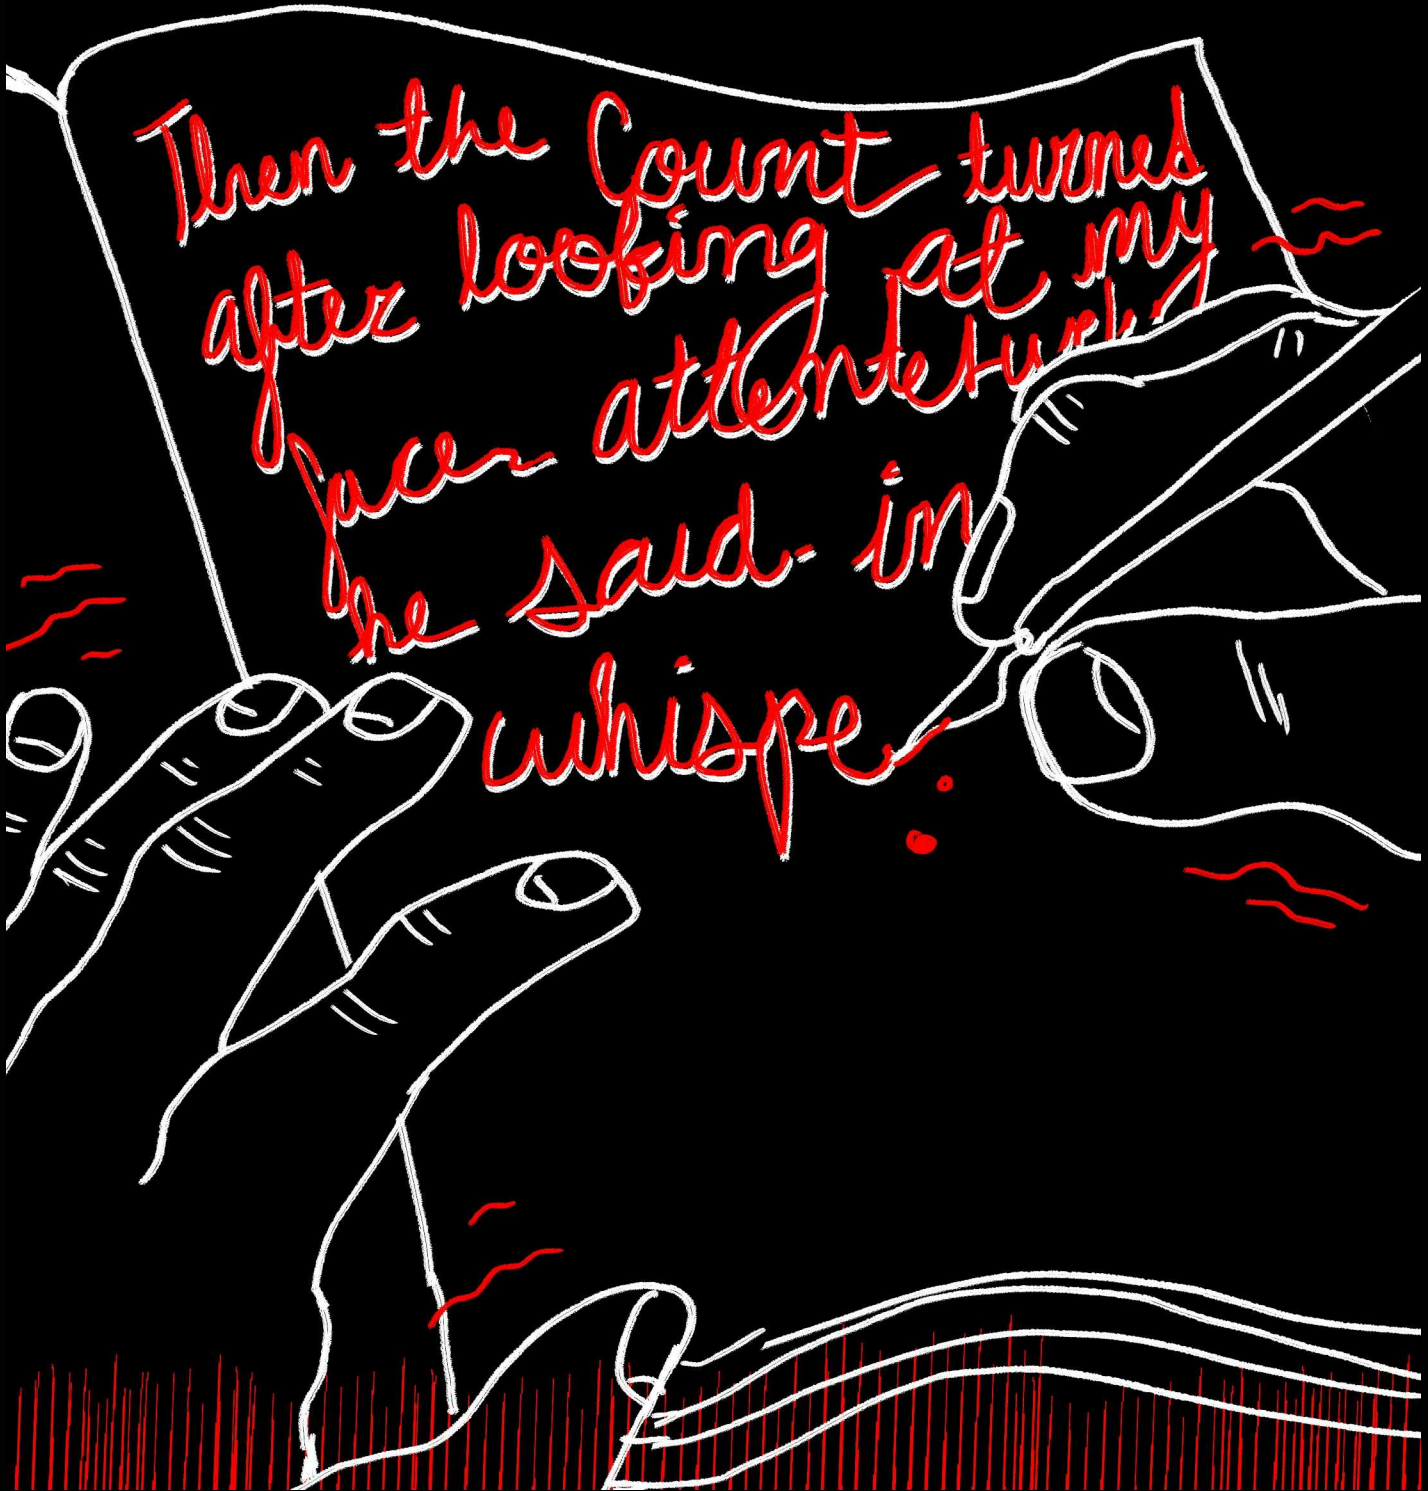 Then the Count turned
after looking at my
face
he said - in
whispe